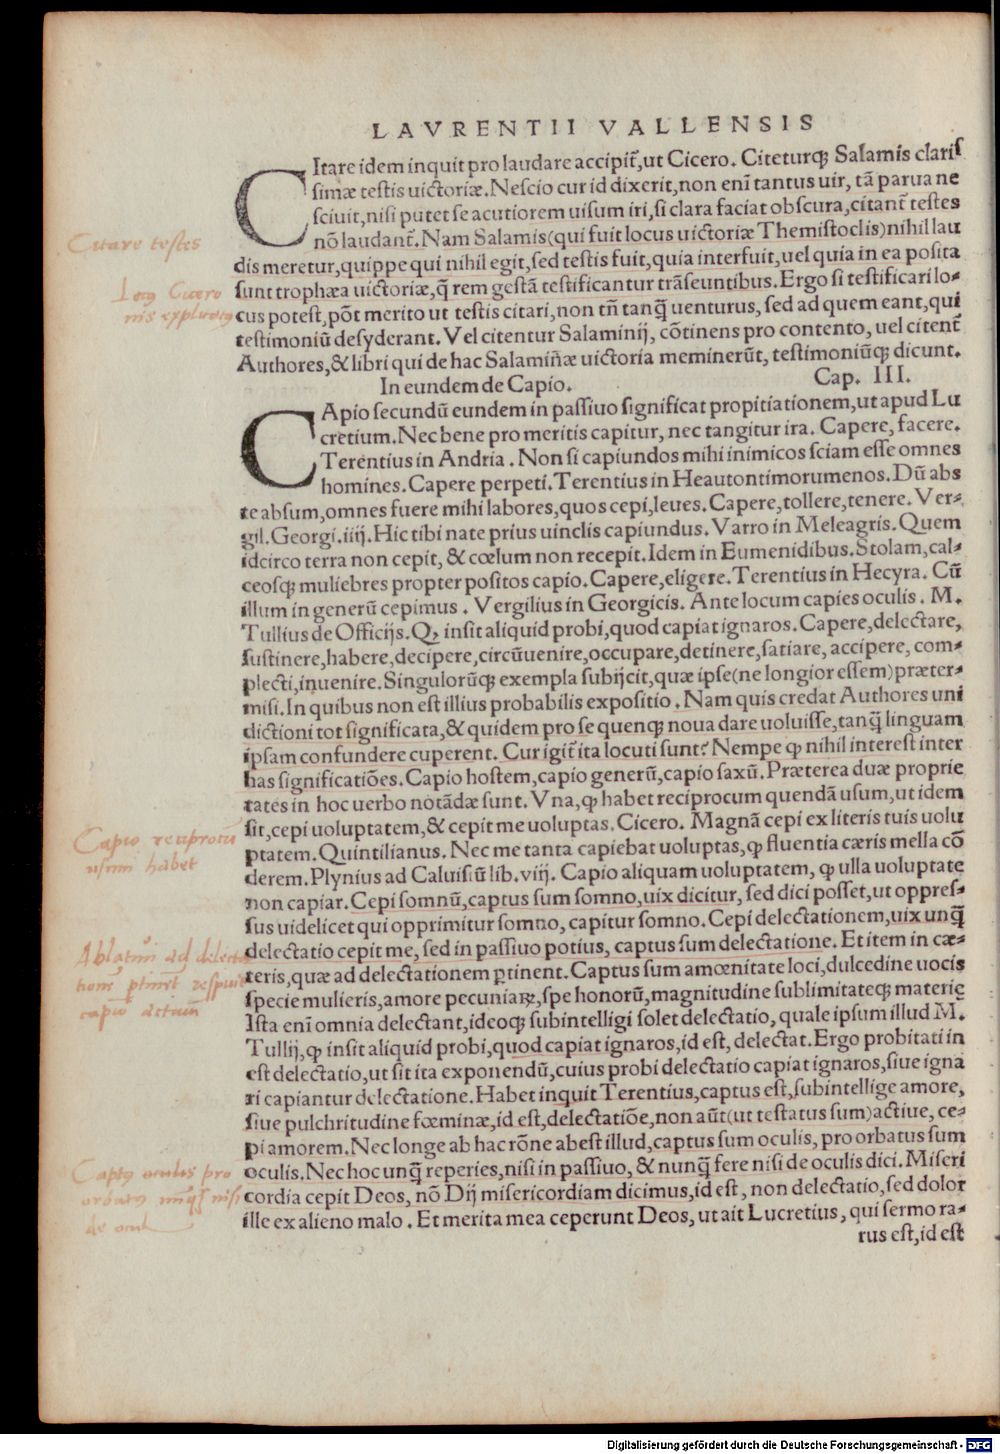 LAVRENTII VALLENSIS
CItare idem inquit pro laudare accipit̃, ut Cicero. Citeturq; Salamis claris
simæ testis uictoriæ. Nescio cur id dixerit, non enĩ tantus uir, tã parua ne
sciuit, nisi putet se acutiorem uisum iri, si clara faciat obscura, citant̃ testes
nõ laudant̃. Nam Salamis (qui fuit locus uictoriæ Themistoclis) nihil lau
Citare testes
dis meretur, quippe qui nihil egit, sed testis fuit, quia interfuit, uel quia in ea posita
sunt trophæa uictoriæ, q̃ rem gestã testificantur trãseuntibus. Ergo si testificari lo-
Locꝰ Cicero
nis explicatꝰ
cus potest, põt merito ut testis citari, non tñ tanq̃ uenturus, sed ad quem eant, qui
testimoniũ desyderant. Vel citentur Salaminij, cõtinens pro contento, uel citent̃
Authores, & libri qui de hac Salamiñæ uictoria meminerũt, testimoniũq; dicunt.
In eundem de Capio. Cap. III.
CApio secundũ eundem in passiuo significat propitiationem, ut apud Lu
cretium. Nec bene pro meritis capitur, nec tangitur ira. Capere, facere.
Terentius in Andria. Non si capiundos mihi inimicos sciam esse omnes
homines. Capere perpeti. Terentius in Heautontimorumenos. Dũ abs
te absum, omnes fuere mihi labores, quos cepi, leues. Capere, tollere, tenere. Ver-
gil. Georgi. iiij. Hic tibi nate prius uinclis capiundus. Varro in Meleagris. Quem
idcirco terra non cepit, & cœlum non recepit. Idem in Eumenidibus. Stolam, cal-
ceosq; muliebres propter positos capio. Capere, eligere. Terentius in Hecyra. Cũ
illum in generũ cepimus. Vergilius in Georgicis. Ante locum capies oculis. M.
Tullius de Officijs. Q, insit aliquid probi, quod capiat ignaros. Capere, delectare,
sustinere, habere, decipere, circũuenire, occupare, detinere, satiare, accipere, com-
plecti, inuenire. Singulorũq; exempla subijcit, quæ ipse (ne longior essem) præter-
misi. In quibus non est illius probabilis expositio. Nam quis credat Authores uni
dictioni tot significata, & quidem pro se quenq; noua dare uoluisse, tanq̃ linguam
ipsam confundere cuperent. Cur igit̃ ita locuti sunt? Nempe ꝙ nihil interest inter
has significatiões. Capio hostem, capio generũ, capio saxũ. Præterea duæ proprie
tates in hoc uerbo notãdæ sunt. Vna, ꝙ habet reciprocum quendã usum, ut idem
sit, cepi uoluptatem, & cepit me uoluptas. Cicero. Magnã cepi ex literis tuis uolu
Capio reciprocũ
usum habet
ptatem. Quintilianus. Nec me tanta capiebat uoluptas, ꝙ fluentia cæris mella cõ
derem. Plynius ad Caluisiũ lib. viij. Capio aliquam uoluptatem, ꝙ ulla uoluptate
non capiar. Cepi somnũ, captus sum somno, uix dicitur, sed dici posset, ut oppres-
sus uidelicet qui opprimitur somno, capitur somno. Cepi delectationem, uix unq̃
delectatio cepit me, sed in passiuo potius, captus sum delectatione. Et item in cæ-
Ablatiui ad delecta
tionē ptinēt respuit
capio actiuũ
teris, quæ ad delectationem ꝑtinent. Captus sum amœnitate loci, dulcedine uocis
specie mulieris, amore pecuniaꝝ, spe honorũ, magnitudine sublimitateq; materie
Ista enĩ omnia delectant, ideoq; subintelligi solet delectatio, quale ipsum illud M.
Tullij, ꝙ insit aliquid probi, quod capiat ignaros, id est, delectat. Ergo probitati in
est delectatio, ut sit ita exponendũ, cuius probi delectatio capiat ignaros, siue igna
ri capiantur delectatione. Habet inquit Terentius, captus est, subintellige amore,
siue pulchritudine fœminæ, id est, delectatiõe, non aũt (ut testatus sum) actiue, ce-
pi amorem. Nec longe ab hac rõne abest illud, captus sum oculis, pro orbatus sum
oculis. Nec hoc unq̃ reperies, nisi in passiuo, & nunq̃ fere nisi de oculis dici. Miseri
Captꝰ oculis pro
orbatꝰ nūq̃ nisi
de
cordia cepit Deos, nõ Dij misericordiam dicimus, id est, non delectatio, sed dolor
ille ex alieno malo. Et merita mea ceperunt Deos, ut ait Lucretius, qui sermo ra-
rus est, id est
Digitalisierung gefördert durch die Deutsche Forschungsgemeinschaft - DFG